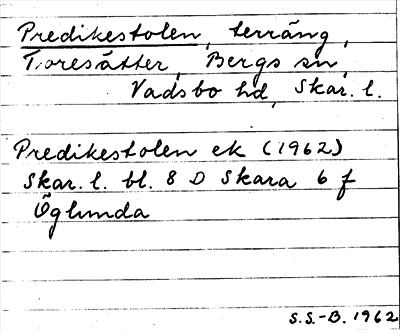 Predikestolen, terräng,
Toresätter, Bergs sn,
Vadsbo hd, Skar. l.
Predikestolen ek (1962)
Skar. l. bl. 8 D Skara 6 f
Öglunda
S.S.-B. 1962